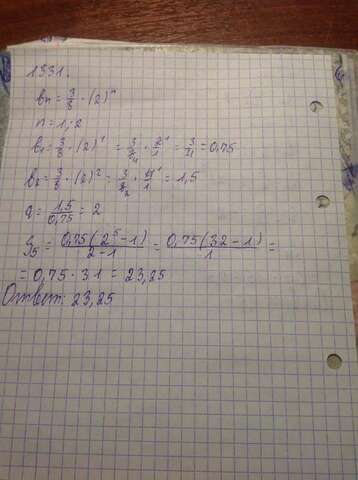 1331.
bn = 3/8 · (2)^n
n = 1; 2
b1 = 3/8 · (2)^1 = 3/8 4 · 2 1/1 = 3/4 = 0,75
b2 = 3/8 · (2)^2 = 3/8 2 · 4 1/1 = 1,5
q = 1,5/0,75 = 2
S5 = 0,75(2^5-1)/2-1 = 0,75(32-1)/1 =
= 0,75 · 31 = 23,25
Ответ: 23,25